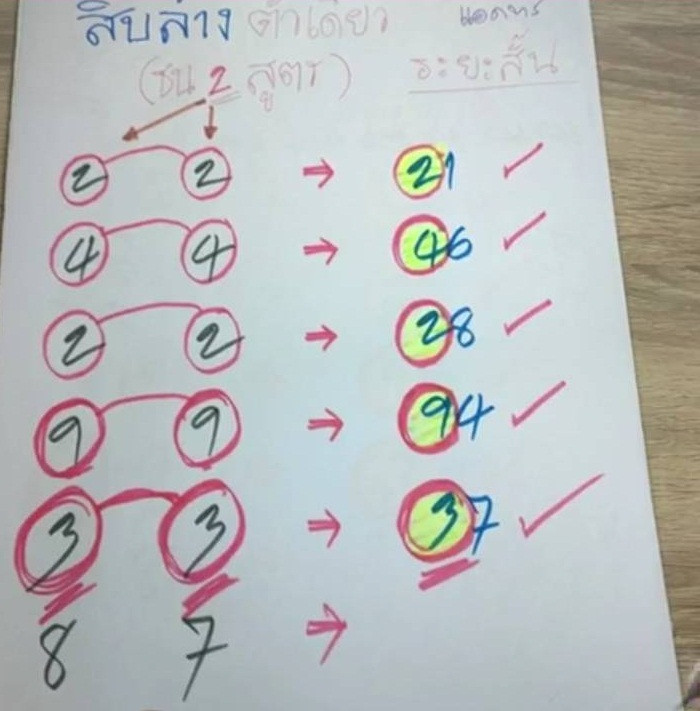 สิบล่าง ตัวเดียว
(ชน 2 สูตร) ระยะสั้น
2 2 → 21 ✓
4 4 → 46 ✓
2 2 → 28 ✓
9 9 → 94 ✓
3 3 → 37 ✓
8 7 →